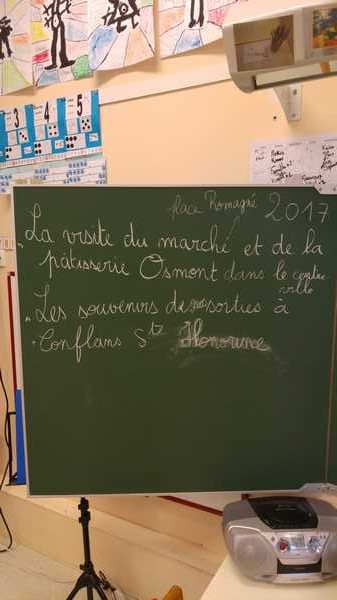 3 4 5
place Romagné 2017
"La visite du marché et de la
pâtisserie Osmont dans le centre
ville
"Les souvenirs de nos sorties à
Conflans Ste Honorine